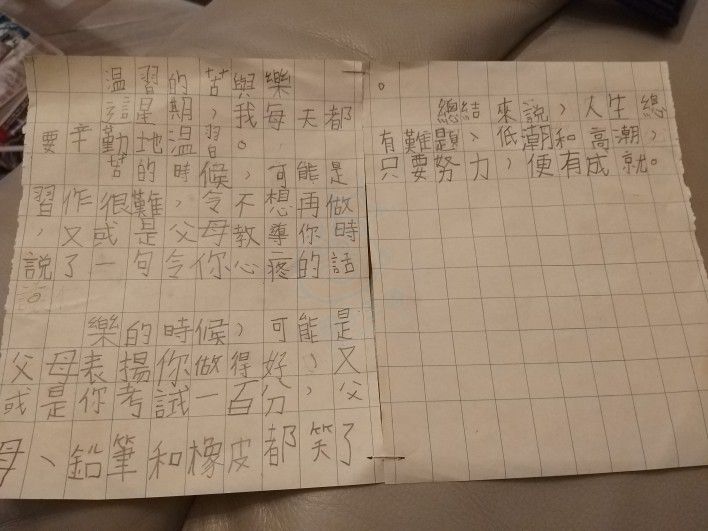 温習的苦與樂
這星期，我每天都
要辛勤地温習。
苦的時候，可能是
習作很難，令不想再做
，又或是父母教導你時
說了一句令你心疼的話
樂的時候，可能是
父母表揚你做得好，又
或是你考試一百分，父
母、鉛筆和橡皮都笑了
。
總結來說，人生總
有難題、低潮和高潮，
只要努力，便有成就。